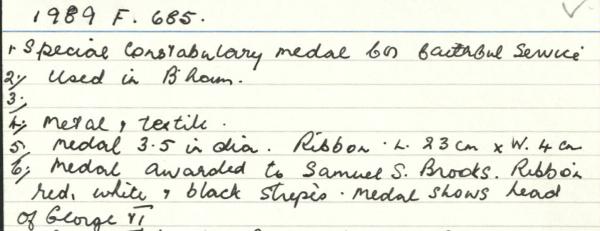 1989 F. 685.
1. Special Constabulary medal for faithful Service
2. Used in B'ham.
3.
4. Metal, textile.
5. Medal 3.5 in dia. Ribbon. L. 23 cm x W. 4 cm
6. Medal awarded to Samuel S. Brooks. Ribbon
red, white, & black stripes. Medal shows head
of George VI